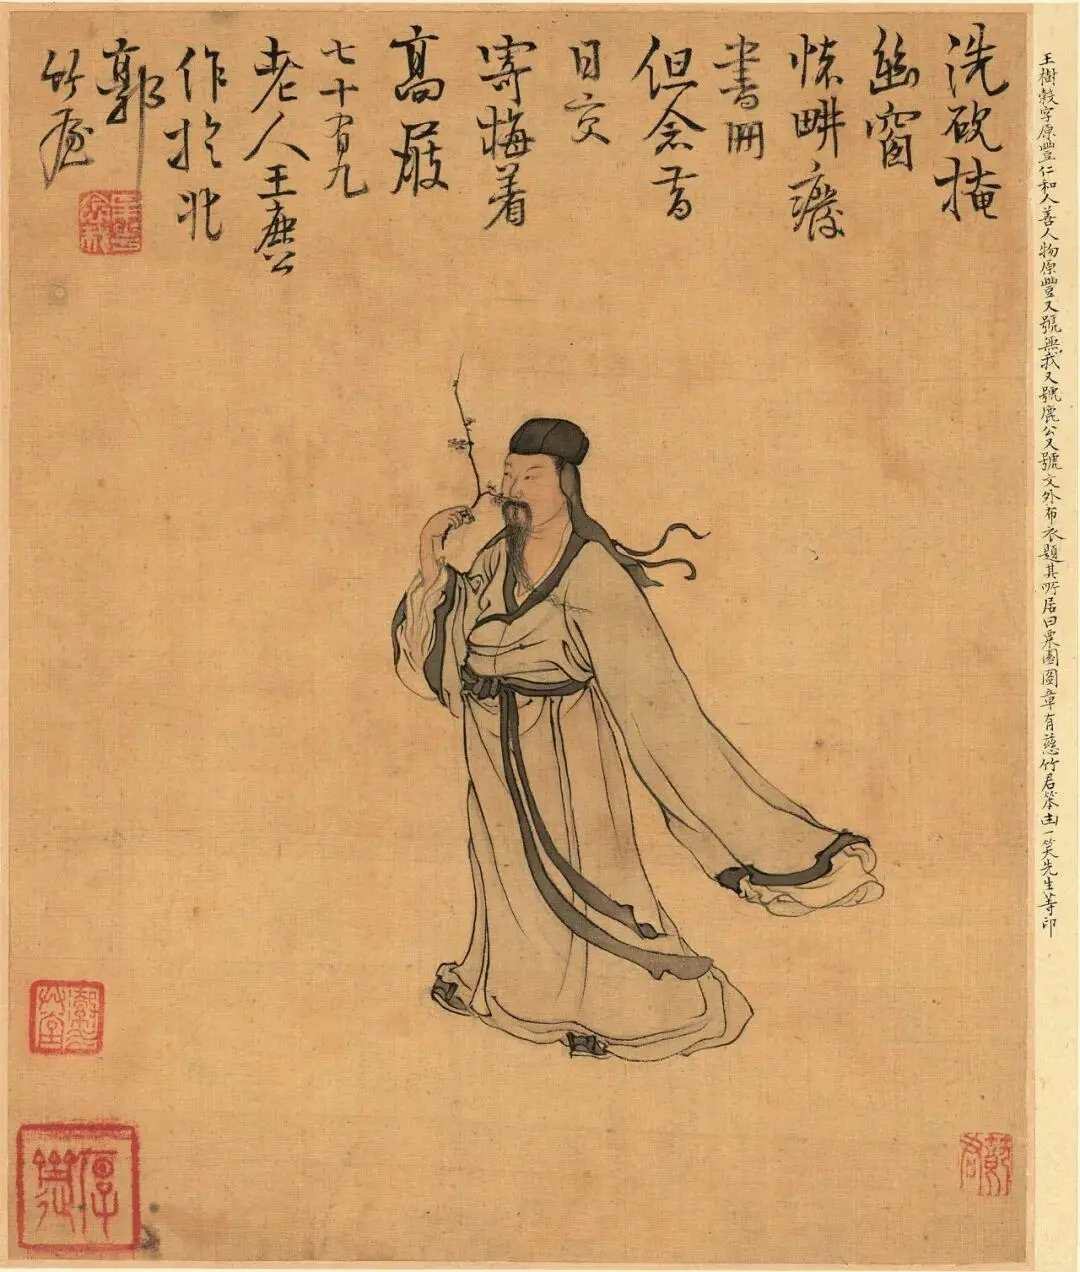 王樹穀字原豐仁和人善人物原豐又號無我又號鹿公又號外布衣題其所居曰栗園圖章有慈竹君笨一笑先生等印
洗硯掩
幽窗
畊癈
書冊
但念昔
日交
寄梅着
高屐
七十有九
老人王鹿公
作於北
郭
竹